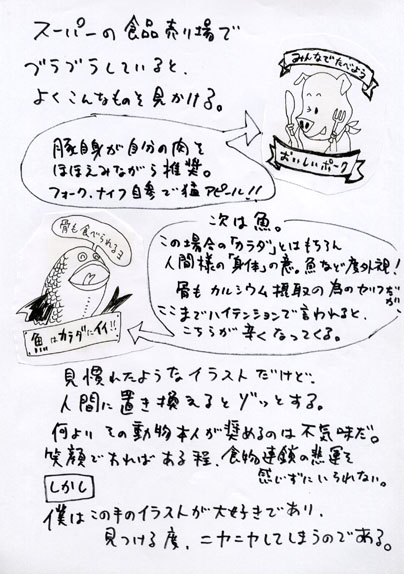 スーパーの食品売り場で
ブラブラしていると、
よくこんなものを見かける。
みんなでたべよう
おいしいポーク
豚自身が自分の肉を
ほほえみながら推奨。
フォーク、ナイフ自参で猛アピール!!
次は魚。
この場合の「カラダ」とはもちろん
人間様の「身体」の意。魚など度外視!
骨もカルシウム摂取の為のセリフだが、
ここまでハイテンションで言われると、
こちらが辛くなってくる。
骨も食べられるヨ
魚はカラダにイイ!!
見慣れたようなイラストだけど、
人間に置き換えるとゾッとする。
何よりその動物本人が奨めるのは不気味だ。
笑顔であればある程、食物連鎖の悲運を
感じずにいられない。
しかし
僕はこの手のイラストが大好きであり、
見つける度、ニヤニヤしてしまうのである。